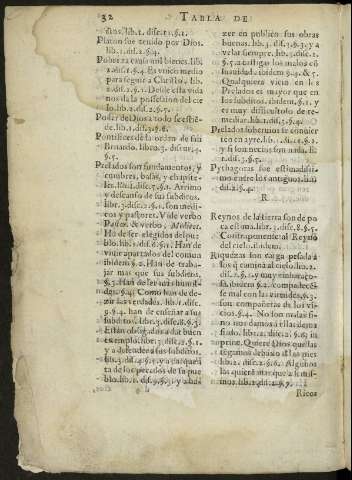 32 TABLA DE
dios. lib. 1. disc. 1. §. 1.
Platon fue tenido por Dios.
lib. 1. dis. 2. §. 4.
Pobreza causa mil bienes. lib.
1. dis. 2. §. 4. Es vnico medio
para seguir a Christo. lib.
2. dis. 2. §. 1. Desde esta vida
nos da la possession del cie
lo. lib. 2. dis. 2. §. 5.
Poder de Dios a todo se estiē-
de. lib. 1. dis. 3. §. 6.
Pontifices de la orden de san
Bernardo. libro 3. dis. 4.
§. 5.
Prelados son fundamentos, y
cumbres, basas, y chapite-
les. lib. 1. disc. 5. §. 1. Arrimo
y descanso de sus subditos.
libr. 3. disc. 2. §. 1. son medi-
cos y pastores. Vide verbo
Pastor, & verbo, Medicos.
Hā de ser elegidos del pue-
blo. lib. 1. dis. 2. §. 1. Han de
viuir apartados del comun
ibidem §. 2. Han de traba-
jar mas que sus subditos.
§. 3. Han de ser muy humil-
des. §. 4. Como han de de-
zir las verdades. lib. 1. dis.
§. 4. han de enseñar a sus
subditos. libr. 3. disc. 8. §. 3
Están obligados a dar buen
exemplo. libr. 3. disc. 2. §. 1.
y a defender a sus subditos.
lib. 3. dis. 4. §. 1. y a dar cuen
ta de los pecados de su pue
blo. lib. 1. dis. 9. §. 3. y a ha
zer en publico sus obras
buenas. lib. 3. dis. 3. §. 3. y a
velar siempre. lib. 3. disc. 3.
§. 5. a castigar los malos cō
suauidad. ibidem §. 4. & 5.
Qualquiera vicio en los
Prelados es mayor que en
los subditos. ibidem. §. 1. y
es muy dificultoso de re-
mediar. lib. 3. dis. 9. §. 4.
Prelados soberuios se conuier
ten en ayre. lib. 1. dis. 1. §. 2.
y si son necios son nada. li.
1. dis. 3. §. 5.
Pythagoras fue estimadissi-
mo entre los antiguos. li. 1.
dis. 2. §. 4.
R
Reynos de la tierra son de po
ca estima. libr. 3. disc. 8. §. 5.
Contraponense al Reyno
del cielo. ibidem.
Riquezas son carga pesada a
los q̄ caminā al cielo. lib. 2.
dis. 2. §. 1. y muy embaraço-
sa. ibidem. §. 2. compadecēse
mal con las virtudes. §. 3.
son compañeras de los vi-
cios. §. 4. No son malas si-
no nos damos a ellas dema
siado. lib. 2. disc. 2. §. 6; in
aprine. Quiere Dios que las
tēgamos debaxo d̄ los pies
lib. 2. dis. 2. §. 6. Algunos
las quierē mas que a la mis
ma. lib. 2. dis. 2. §. 7.
Ricos